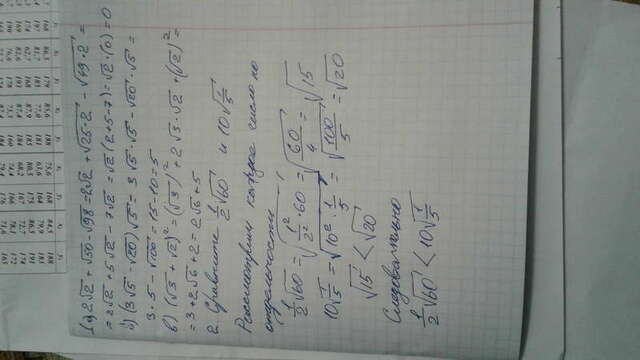 1. а) 2√2 + √50 - √98 = 2√2 + √25·2 - √49·2 =
= 2√2 + 5√2 - 7√2 = √2(2+5-7) = √2·(0) = 0
б) (3√5 - √20)√5 = 3√5·√5 - √20·√5 =
3·5 - √100 = 15-10 = 5
в) (√3 + √2)² = (√3)² + 2√3·√2 + (√2)² =
= 3+2√6+2 = 2√6+5
2. Сравните 1/2√60 и 10√1/5
Рассмотрим каждое число по
отдельности
1/2√60 = √1²/2²·60 = √60/4 = √15
10√1/5 = √10²·1/5 = √100/5 = √20
√15 < √20
Следовательно
1/2√60 < 10√1/5